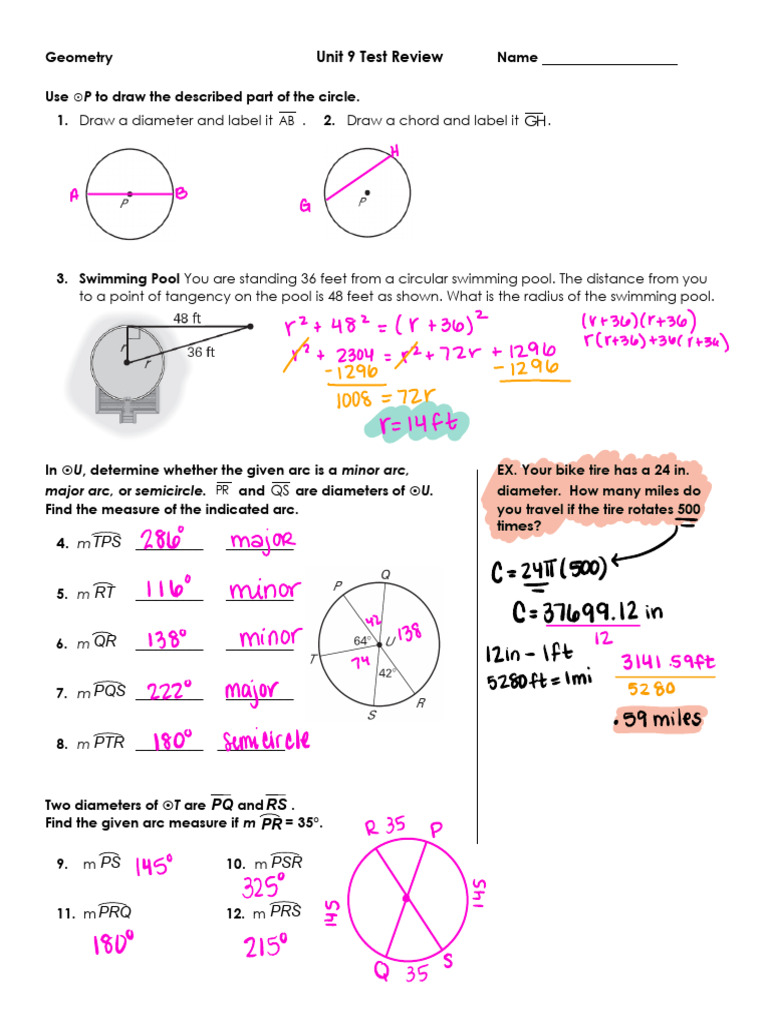 Geometry Unit 9 Test Review Name ________________
Use ⊙P to draw the described part of the circle.
1. Draw a diameter and label it AB . 2. Draw a chord and label it GH.
A P B
G H P
3. Swimming Pool You are standing 36 feet from a circular swimming pool. The distance from you
to a point of tangency on the pool is 48 feet as shown. What is the radius of the swimming pool.
48 ft
36 ft
r
r
r² + 48² = (r + 36)²
r² + 2304 = r² + 72r + 1296
-1296 -1296
1008 = 72r
r = 14ft
(r+36)(r+36)
r(r+36)+36(r+36)
In ⊙U, determine whether the given arc is a minor arc,
major arc, or semicircle. PR and QS are diameters of ⊙U.
Find the measure of the indicated arc.
4. m TPS 286° major
5. m RT 116° minor
6. m QR 138° minor
7. m PQS 222° major
8. m PTR 180° semicircle
Q
P
42
64° U 138
T 74
42°
R
S
EX. Your bike tire has a 24 in.
diameter. How many miles do
you travel if the tire rotates 500
times?
C = 24π(500)
C = 37699.12 in
12
12in - 1ft
5280ft = 1mi
3141.59ft
5280
.59 miles
Two diameters of ⊙T are PQ and RS .
Find the given arc measure if m PR = 35°.
9. m PS 145° 10. m PSR
325°
11. m PRQ 12. m PRS
180° 215°
R 35 P
145 145
Q 35 S